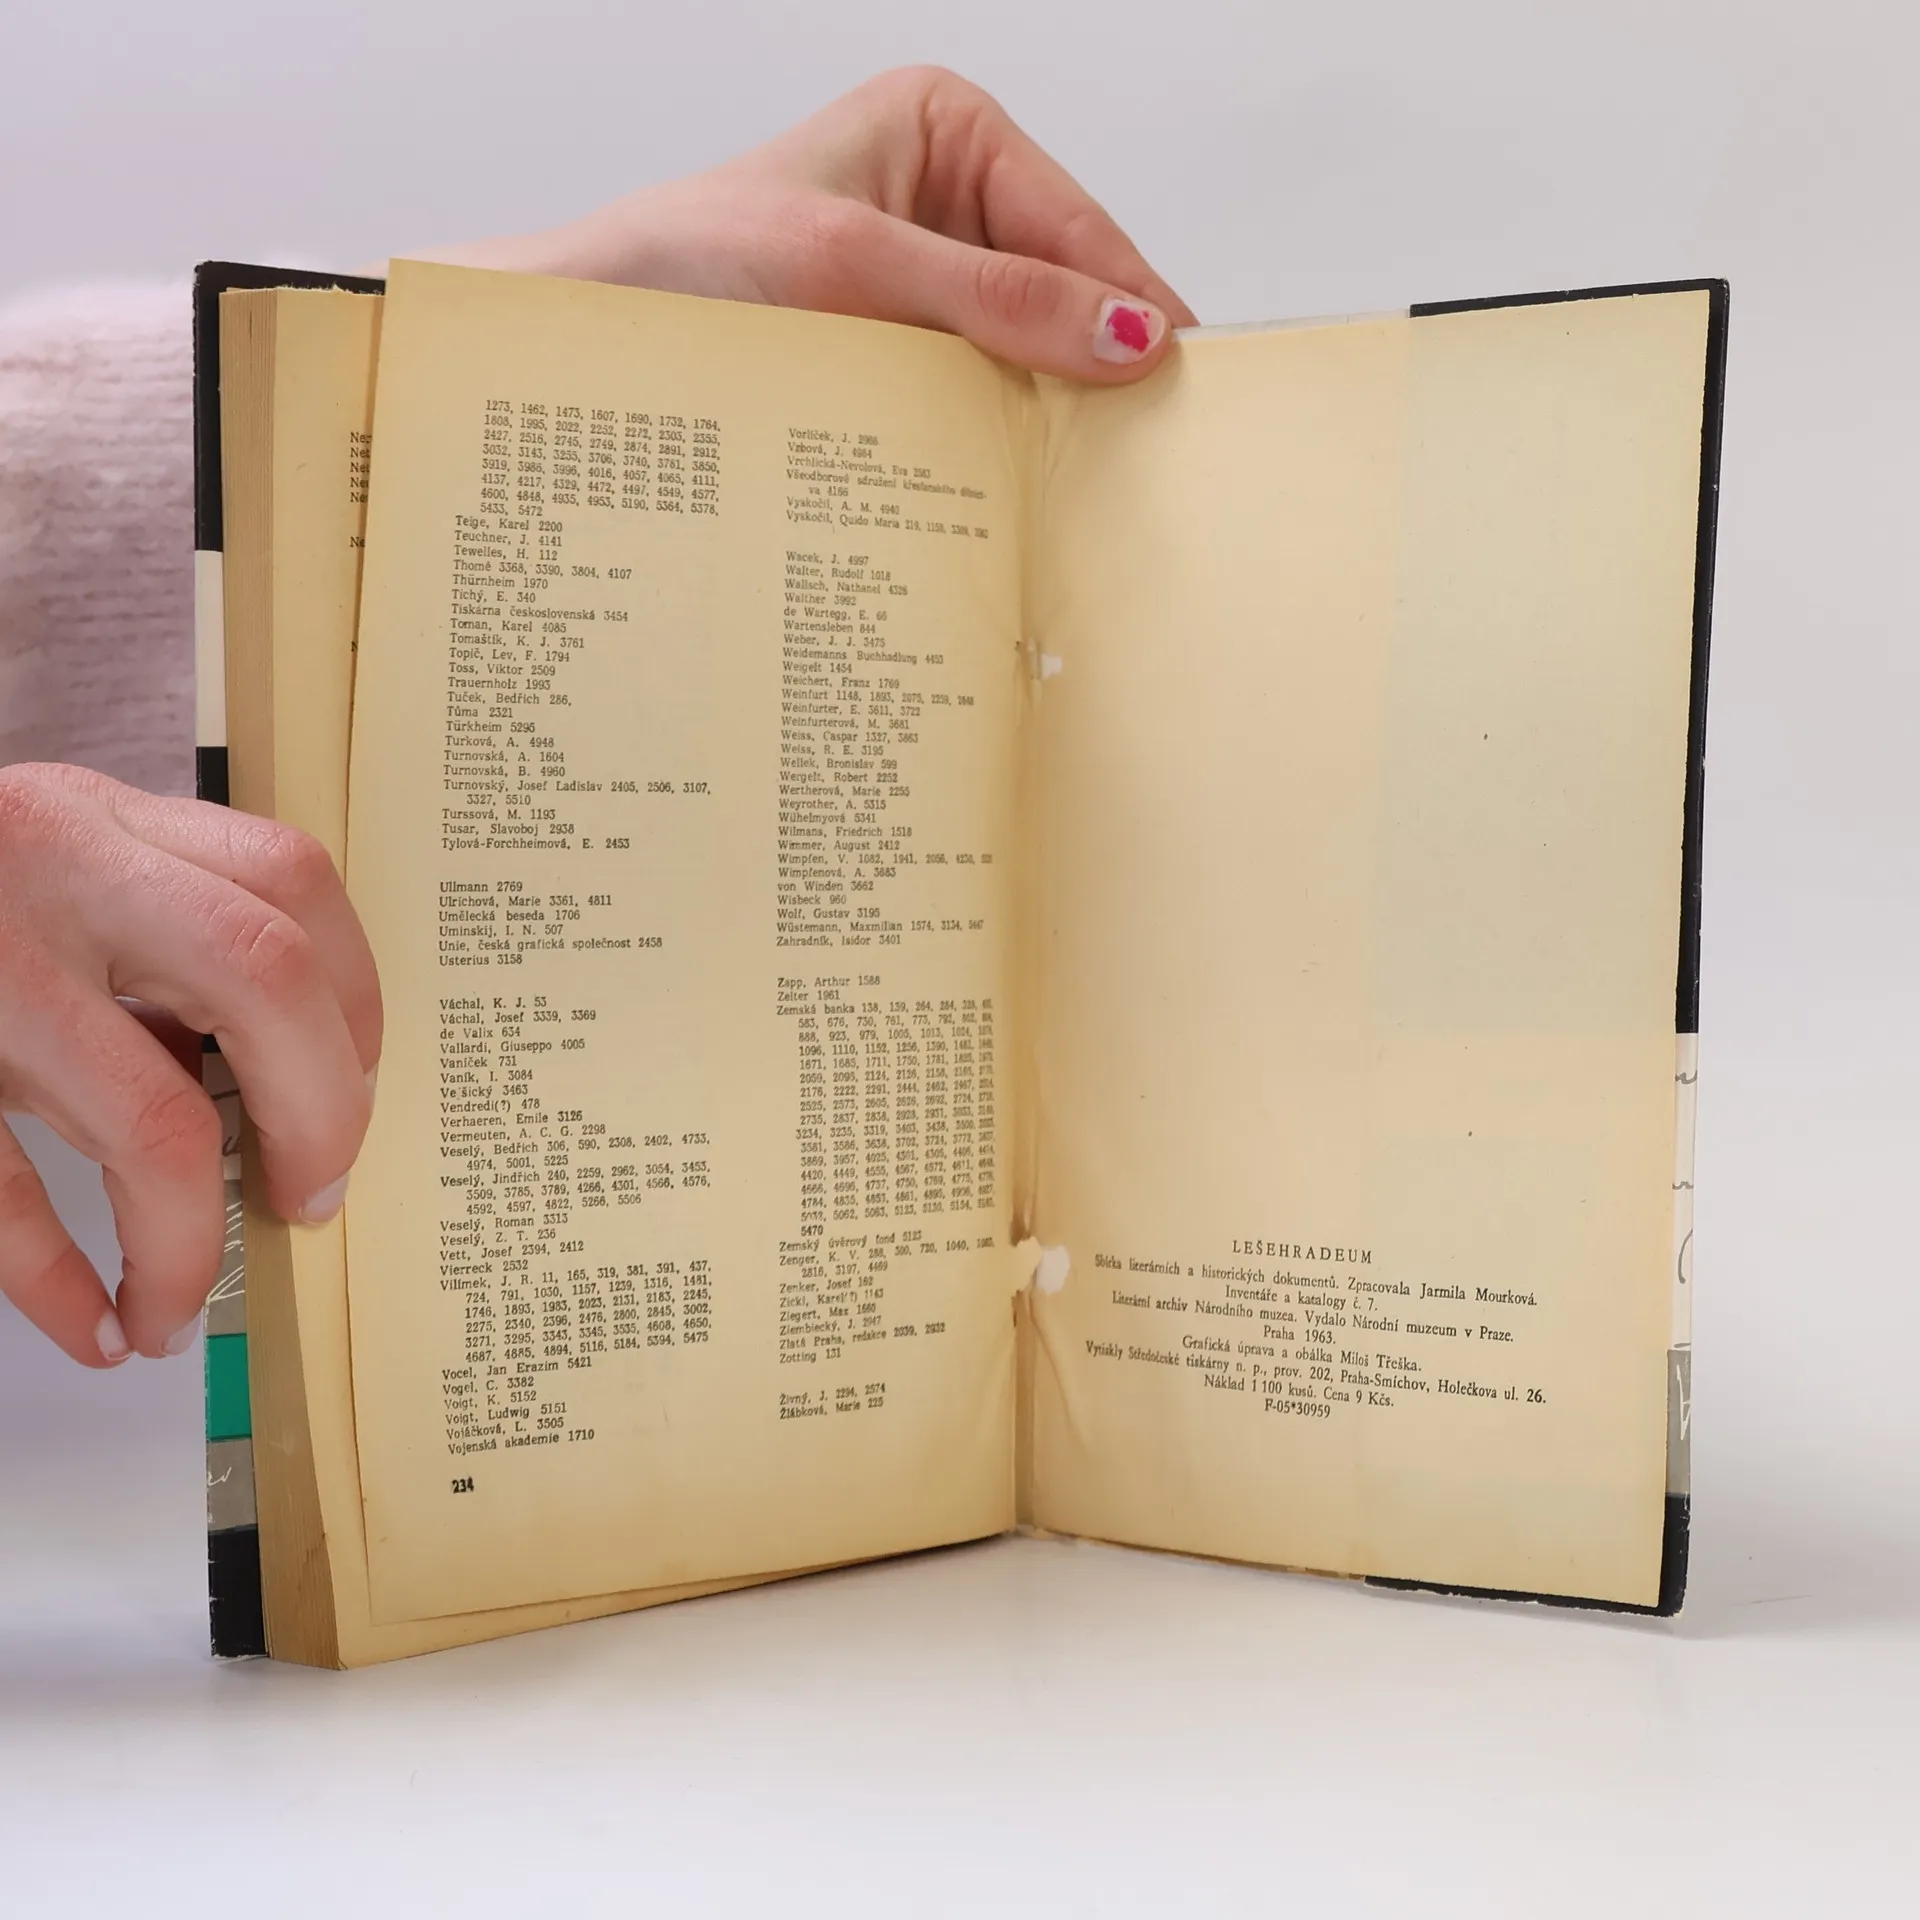 1273, 1462, 1473, 1607, 1690, 1732, 1764,
1808, 1995, 2022, 2252, 2272, 2303, 2355,
2427, 2516, 2745, 2749, 2874, 2891, 2912,
3032, 3143, 3255, 3706, 3740, 3781, 3850,
3919, 3986, 3996, 4016, 4057, 4065, 4111,
4137, 4217, 4329, 4472, 4497, 4549, 4577,
4600, 4848, 4935, 4953, 5190, 5364, 5378,
5433, 5472
Teige, Karel 2200
Teuchner, J. 4141
Tewelles, H. 112
Thomé 3368, 3390, 3804, 4107
Thürnheim 1970
Tichý, E. 340
Tiskárna československá 3454
Toman, Karel 4085
Tomaštík, K. J. 3761
Topič, Lev, F. 1794
Toss, Viktor 2509
Trauernholz 1993
Tuček, Bedřich 286,
Tůma 2321
Türkheim 5295
Turková, A. 4948
Turnovská, A. 1604
Turnovská, B. 4960
Turnovský, Josef Ladislav 2405, 2506, 3107,
3327, 5510
Turssová, M. 1193
Tusar, Slavoboj 2938
Tylová-Forchheimová, E. 2453
Ullmann 2769
Ulrichová, Marie 3361, 4811
Umělecká beseda 1706
Uminskij, I. N. 507
Unie, česká grafická společnost 2458
Usterius 3158
Váchal, K. J. 53
Váchal, Josef 3339, 3369
de Valix 634
Vallardi, Giuseppo 4005
Vaníček 731
Vaník, I. 3084
Ve šický 3463
Vendredi(?) 478
Verhaeren, Emile 3126
Vermeuten, A. C. G. 2298
Veselý, Bedřich 306, 590, 2308, 2402, 4733,
4974, 5001, 5225
Veselý, Jindřich 240, 2259, 2962, 3054, 3453,
3509, 3785, 3789, 4266, 4301, 4566, 4576,
4592, 4597, 4822, 5266, 5506
Veselý, Roman 3313
Veselý, Z. T. 236
Vett, Josef 2394, 2412
Vierreck 2532
Vilímek, J. R. 11, 165, 319, 381, 391, 437,
724, 791, 1030, 1157, 1239, 1316, 1481,
1746, 1893, 1983, 2023, 2131, 2183, 2245,
2275, 2340, 2396, 2476, 2800, 2845, 3002,
3271, 3295, 3343, 3345, 3535, 4608, 4650,
4687, 4885, 4894, 5116, 5184, 5394, 5475
Vocel, Jan Erazim 5421
Vogel, C. 3382
Voigt, K. 5152
Voigt, Ludwig 5151
Vojáčková, L. 3505
Vojenská akademie 1710
234
Vorlíček, J. 2966
Vrbová, J. 4984
Vrchlická-Nevolová, Eva 2583
Všeodborové sdružení křesťanského dělnict-
va 4166
Vyskočil, A. M. 4940
Vyskočil, Quido Maria 219, 1158,
Wacek, J. 4997
Walter, Rudolf 1018
Wallsch, Nathanel 4326
Walther 3992
de Wartegg, E. 66
Wartensleben 844
Weber, J. J. 3475
Weidemanns Buchhadlung 4453
Weigelt 1454
Weichert, Franz 1769
Weinfurt 1148, 1893, 2075, 2259,
Weinfurter, E. 3611, 3722
Weinfurterová, M. 3681
Weiss, Caspar 1327, 3863
Weiss, R. E. 3195
Wellek, Bronislav 599
Wergelt, Robert 2252
Wertherová, Marie 2255
Weyrother, A. 5315
Wühelmyová 5341
Wilmans, Friedrich 1518
Wimmer, August 2412
Wimpfen, V. 1082, 1941, 2056, 4230,
Wimpfenová, A. 3683
von Winden 3662
Wisbeck 960
Wolf, Gustav 3195
Wüstemann, Maxmilian 1574, 3134,
Zahradník, Isidor 3401
Zapp, Arthur 1588
Zelter 1961
Zemská banka 138, 139, 264, 284, 328,
583, 676, 730, 761, 773, 792, 802,
888, 923, 979, 1005, 1013, 1024,
1096, 1110, 1152, 1256, 1390, 1481,
1671, 1685, 1711, 1750, 1781, 1825,
2059, 2095, 2124, 2126, 2158, 2165,
2176, 2222, 2291, 2444, 2462, 2467,
2525, 2573, 2605, 2626, 2692, 2724,
2735, 2837, 2838, 2928, 2931, 3033,
3234, 3235, 3319, 3403, 3438, 3500,
3581, 3586, 3638, 3702, 3724, 3772,
3869, 3957, 4025, 4301, 4305, 4406,
4420, 4449, 4555, 4567, 4572, 4611,
4666, 4696, 4737, 4750, 4769, 4775,
4784, 4835, 4853, 4861, 4895, 4906,
5032, 5062, 5063, 5123, 5130, 5154,
5470
Zemský úvěrový fond 5123
Zenger, K. V. 288, 300, 720, 1040,
2816, 3197, 4469
Zenker, Josef 162
Zickl, Karel(?) 1143
Ziegert, Max 1660
Ziembiecký, J. 2947
Zlatá Praha, redakce 2039, 2932
Zotting 131
Živný, J. 2294, 2574
Žlábková, Marie 225
LEŠEHRADEUM
Sbírka literárních a historických dokumentů. Zpracovala Jarmila Mourková.
Inventáře a katalogy č. 7.
Literární archiv Národního muzea. Vydalo Národní muzeum v Praze.
Praha 1963.
Grafická úprava a obálka Miloš Třeška.
Vytiskly Středočeské tiskárny n. p., prov. 202, Praha-Smíchov, Holečkova ul. 26.
Náklad 1 100 kusů. Cena 9 Kčs.
F-05*30959